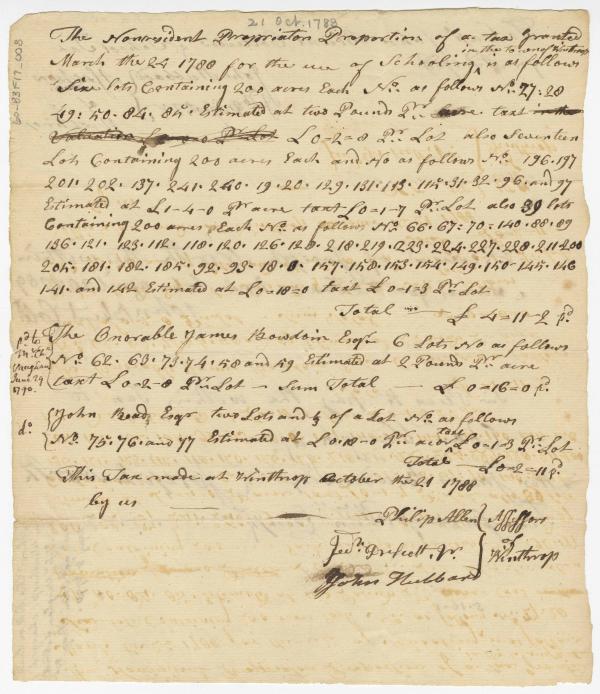 21 Oct. 1788
60-83F17_008
The Nonresident Propriators Proportion of a tax Granted
in the town of Winthrop
March the 24 1788 for the use of Schooling is as follows
Six lots Containing 200 acres Each No. as follows No. 27. 28
49. 50. 84. 85. Estimated at two Pounds Pr. acre taxt in the
Valuation £0-0-0 Pr Lot £0-2=8 Pr Lot also Seventeen
Lots Containing 200 acres Each and No as follows No. 196. 197
201. 202. 137. 241. 240. 19. 20. 129. 131. 113. 115. 31. 32. 96. and 97
Estimated at £1-4-0 Pr acre taxt £0=1-7 Pr Lot also 39 lots
Containing 200 acres Each No. as follows No. 66. 67: 70: 140. 88. 89
136. 121. 123. 112. 118. 120. 126. 128. 218. 219. 223. 224. 227. 228. 211. 200
205. 181. 182. 185. 92. 93. 18. 157. 158. 153. 154. 149. 150. 145. 146
141. and 142 Estimated at £0=18=0 taxt £0-1=3 Pr Lot
Total — £4=11-2 pd.
The Onorable James Bowdoin Esqr 6 Lots No as follows
No. 62. 63. 73. 74. 58 and 59 Estimated at 2 Pounds Pr acre
taxt £0-2-8 Pr Lot — Sum Total — £0=16=0 pd.
pd. to
June 29
1790.
do.
John Read Esqr two Lots and ½ of a Lot No. as follows
No. 75. 76. and 77 Estimated at £0-18-0 Pr acre taxt £0=1=3 Pr Lot
Total — £0=2=11 pd.
This Tax made at Winthrop October the 21 1788
by us
Philip Allen
Jedn. Prescott Jr.
John Hubbard
Assessors
of
Winthrop